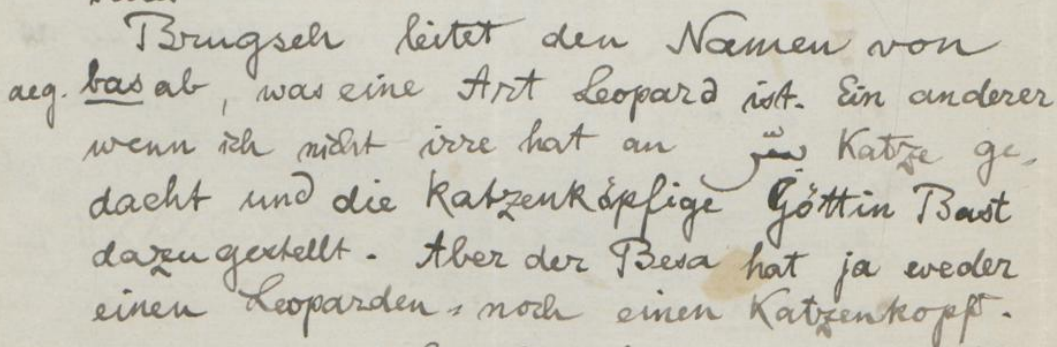 Brugsch leitet den Namen von
aeg. bas ab, was eine Art Leopard ist. Ein anderer
wenn ich nicht irre hat an بسّ Katze ge-
dacht und die katzenköpfige Göttin Bast
dazugestellt. Aber der Besa hat ja weder
einen Leoparden- noch einen Katzenkopf.